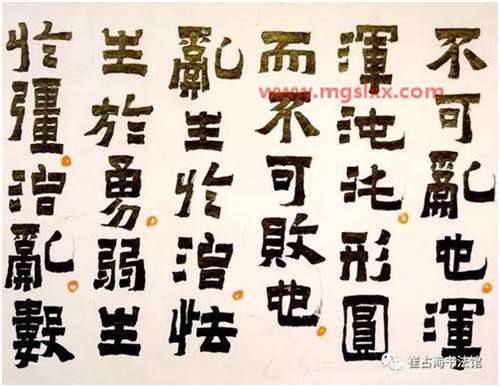 不可亂也渾
渾沌沌形圓
而不可敗也
亂生於治怯
生於勇弱生
於彊治亂數
www.mgslxx.com
崔占海书法馆